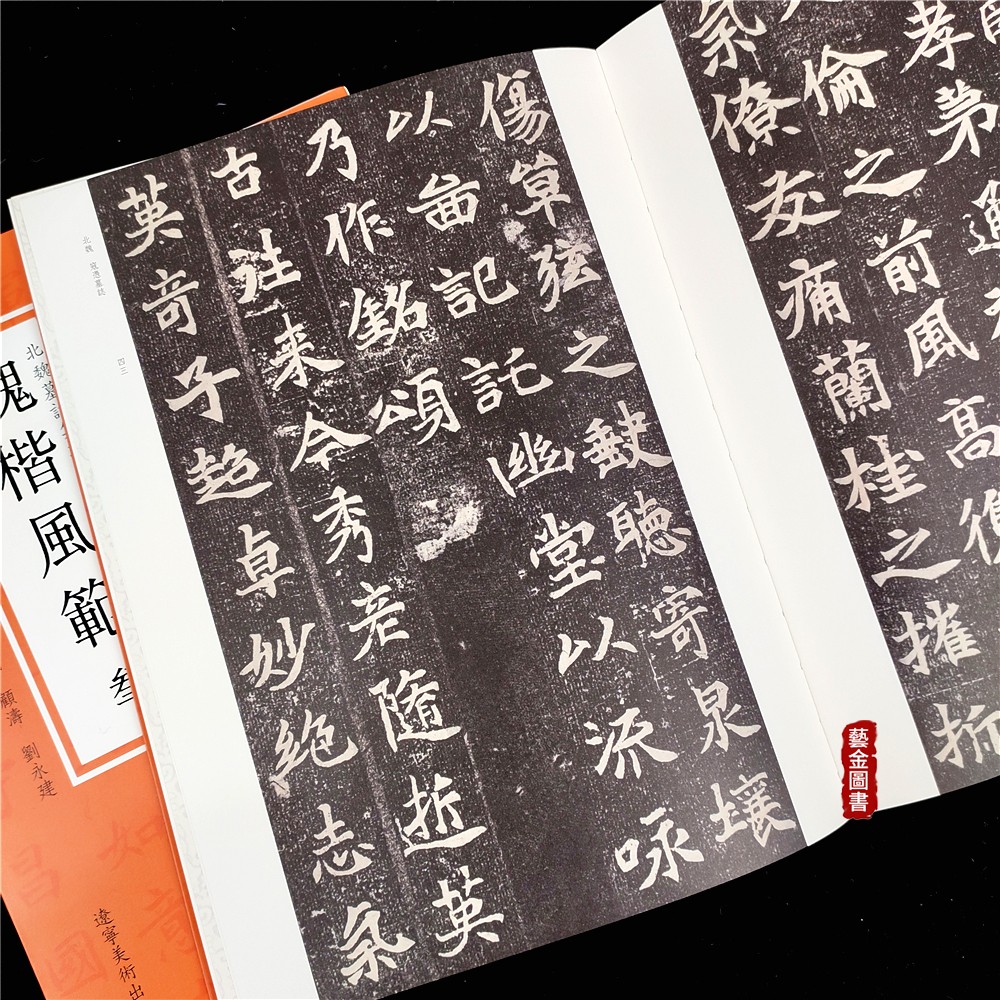 孝弟進
倫之前風高
氣僚友痛蘭桂之摧折
傷草弦之皷聽寄泉壤
以啚記託幽堂以派咏
乃作銘頌
古往来今秀老隨逝英
英奇子超卓妙絶志氣
北魏 寇憑墓誌
四三
北魏墓誌
魏楷風範
叁
顧濤 劉永建
遼寧美術出
藝金圖書